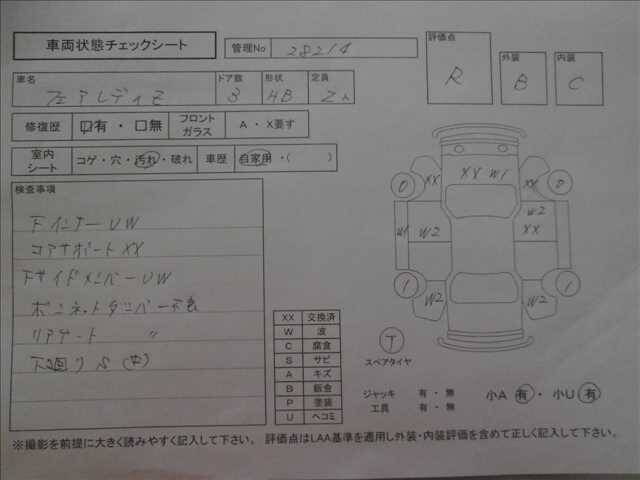 車両状態チェックシート
管理No 28214
評価点 R
外装 B
内装 C
車名 フェアレディZ
ドア数 3
形状 HB
定員 2人
修復歴 □有・□無
フロントガラス A ・ X要す
室内シート コゲ・穴・汚れ・破れ
車歴 自家用・( )
検査事項
下インナーUW
コアサポートXX
下サイドメンバーUW
ボンネットダンパー不良
リアゲート 〃
下回りS(中)
XX W1
XX
XX
0
0
W1
W2
W2
XX
1
1
W2
W2
T
スペアタイヤ
XX 交換済
W 波
C 腐食
S サビ
A キズ
B 鈑金
P 塗装
U ヘコミ
ジャッキ 有・無
工具 有・無
小A 有・ 小U 有
※撮影を前提に大きく読みやすく記入して下さい。 評価点はLAA基準を適用し外装・内装評価を含めて正しく記入して下さい。